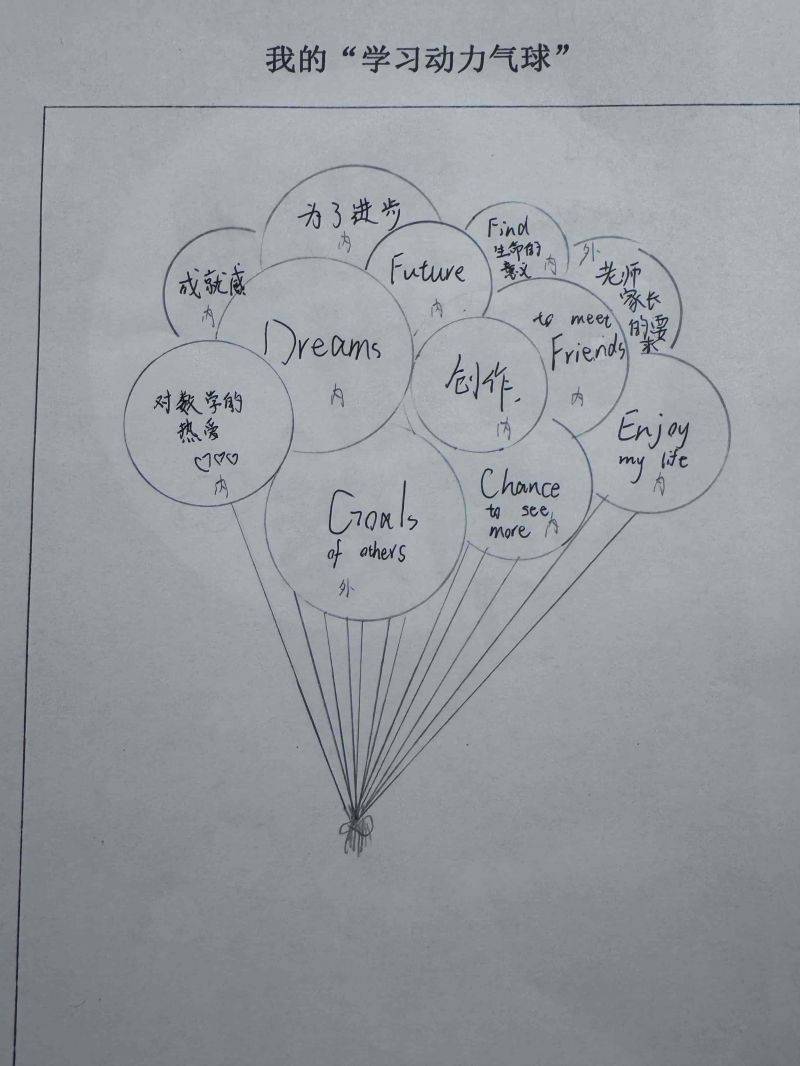 我的“学习动力气球”
为了进步
内
Find
生命的
意义
内
外
老师
家长
的要
求
成就感
内
Future
内
Dreams
内
to meet
Friends
内
创作.
内
对数学的
热爱
♡♡♡
内
Enjoy
my life
内
Goals
of others
外
Chance
to see
more
内